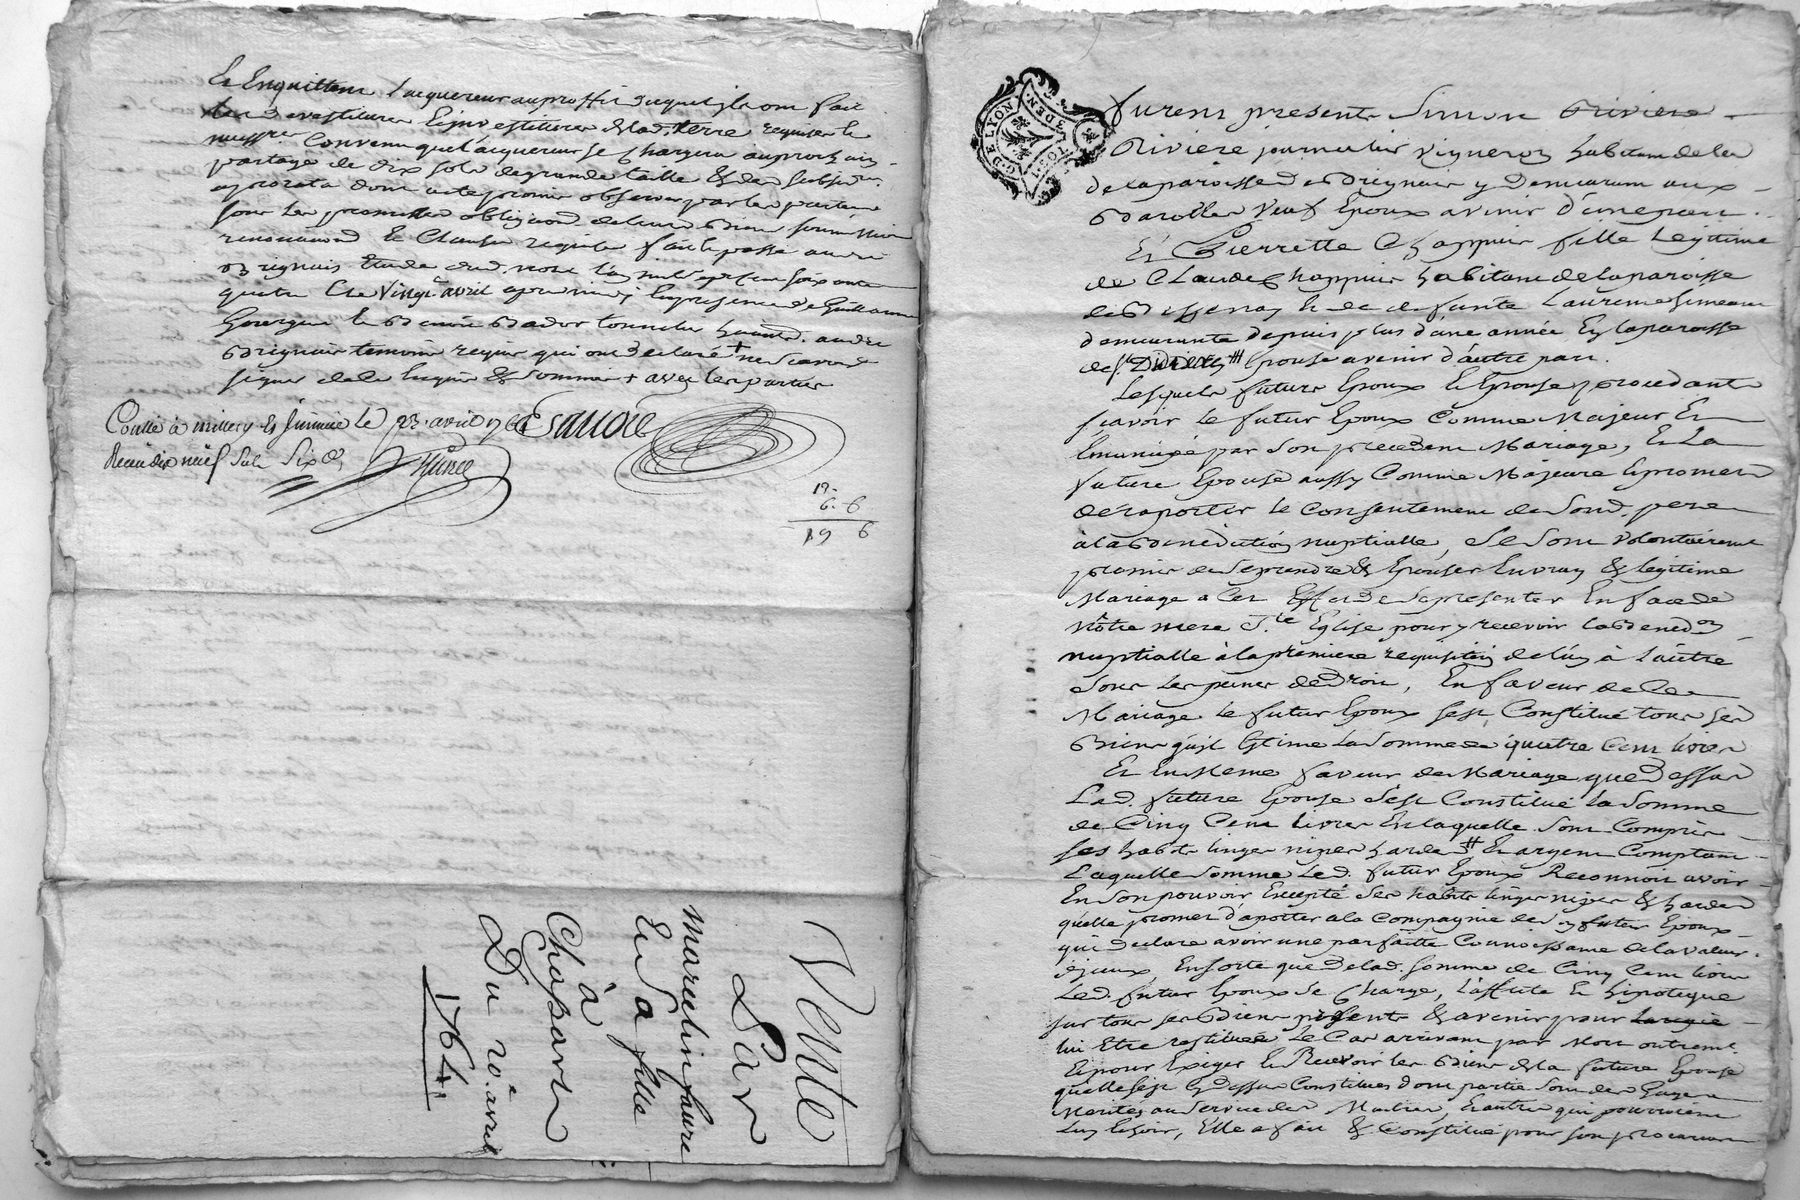 Et Enquittent l'acquereur au proffit duquel ils ont fait
devestiture Et investiture de lad. terre requise le
Convenu que l'acquereur se Chargera au prochain
partage de dix sols de grande taille & des
aprorata dont acte promis observer par les parties
sous les promesses obligaõns de leurs Biens soumissions
renonciaõns Et Clauses requises fait & passé aud.
Brignais Etude dud. no.re l'an mil sept cent soixante
quatre & le Vingt avril apres midy En presence de Guillaume
tonnelier aud.
Brignais temoins requis qui ont declaré ne sçavoir
signer de ce Enquis & sommés + avec les parties
Conllé à millery & Guinné le 23. avril 1764
Reçu dix neuf sols six d.
19.
6. 6
19 6
Vente
Par
marcelin faure
Et Sa fille
à
Chapard
Du 20. avril
1764.
G. DE LYON
Furent presents Simon Riviere
Riviere journalier vigneron habitant de la
de la paroisse de Brignais y Demeurant aux
Barolles veuf Epoux avenir d'une part.
Et Pierrette Chappuis fille Legitime
de Claude Chappuis habitant de la paroisse
de Bessenay & de defunte Laurence
demeurante depuis plus d'une année En la paroisse
de St. Epouse avenir d'autre part.
Lesquels futurs Epoux & Epouse procedants
sçavoir le futur Epoux Comme Majeur Et
Emancipé par Son precedent Mariage, Et La
future Epouse aussy Comme Majeure Et promet
de raporter le Consentement de Sond. pere
à la Benédiction nuptialle, Se Sont volontairement
promis de Se prendre & Epouser En vray & legitime
Mariage a Cet Effet de Se presenter En face de
Nôtre mere Ste. Eglise pour y recevoir la Benedon.
nuptialle à la premiere requisition de l'un à L'autre
Sous Les peines de Droit, En faveur de Ce
Mariage le futur Epoux S'est Constitué tous Ses
Biens qu'il Estime La Somme de quatre Cent livres
Et En Meme faveur de Mariage que Dessus
Lad. future Epouse S'est Constitué La Somme
de Cinq Cent livres En laquelle Sont Compris
Ses habits linges nipes hardes Et argent Comptant
Laquelle Somme Led. futur Epoux Reconnoit avoir
En Son pouvoir Excepté Ses habits linges nipes & hardes
qu'elle promet d'aporter a la Compagnie de Son futur Epoux
qui declare avoir une parfaitte Connoissance de la valeur
d'iceux, En sorte que de lad. Somme de Cinq Cent livres
Led. futur Epoux Se Charge, L'assure Et hipoteque
sur tous Ses Biens presents & avenir pour
lui Etre restituée Le Cas arrivant par Mort ou autremt.
Et pour Exiger Et Recevoir les Biens de la future Epouse
qu'elle S'est Cy dessus Constitués dont partie Sont des Gages
Merités au Service des Maitres, Et autres qui pourroient
Luy Echoir, Elle a fait & Constitué pour Son procureur